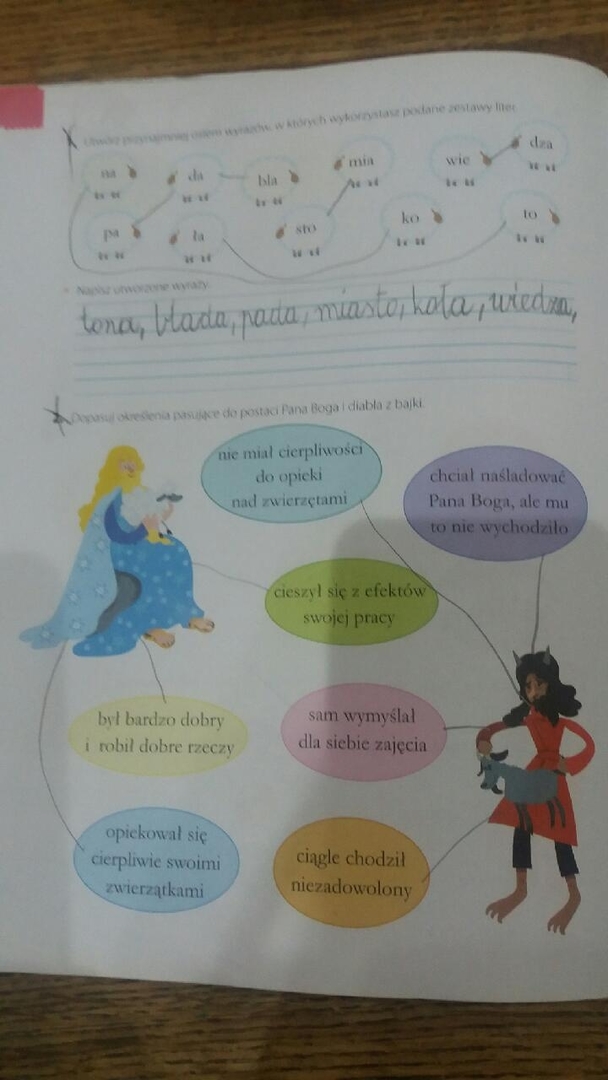 Utwórz przynajmniej osiem wyrazów, w których wykorzystasz podane zestawy liter.
na da bla mia wie dza
pa ła sto ko to
Napisz utworzone wyrazy.
tona, blada, pada, miasto, koła, wiedza,
Dopasuj określenia pasujące do postaci Pana Boga i diabła z bajki.
nie miał cierpliwości
do opieki
nad zwierzętami
chciał naśladować
Pana Boga, ale mu
to nie wychodziło
cieszył się z efektów
swojej pracy
był bardzo dobry
i robił dobre rzeczy
sam wymyślał
dla siebie zajęcia
opiekował się
cierpliwie swoimi
zwierzątkami
ciągle chodził
niezadowolony